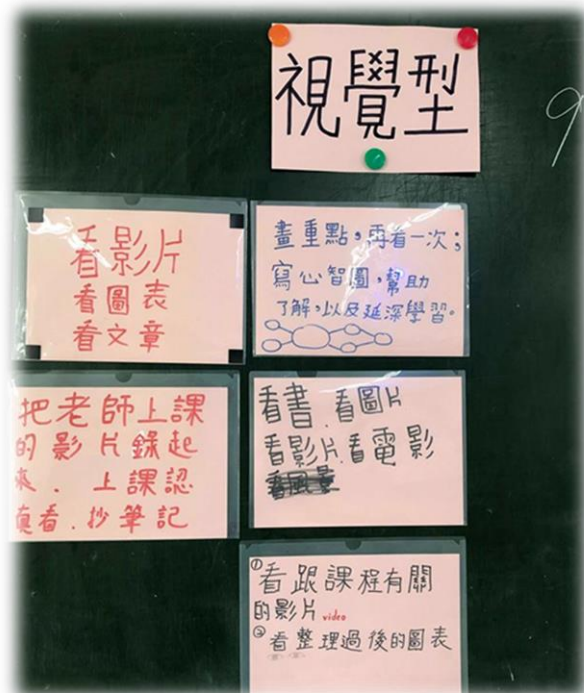 視覺型
看影片
看圖表
看文章
畫重點，再看一次；
寫心智圖，幫助
了解，以及延深學習。
把老師上課
的影片錄起
來．上課認
真看．抄筆記
看書．看圖片
看影片．看電影
看風景
①看跟課程有關
的影片 video
②看整理過後的圖表